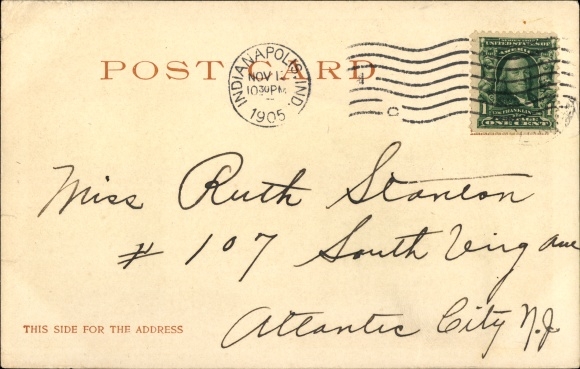 POST CARD
INDIANAPOLIS, IND.
NOV 12
1030 PM
1905
C
UNITED STATES OF AMERICA
FRANKLIN
POSTAGE
1 ONE CENT
Miss Ruth Stanton
# 107 South Virg Ave
Atlantic City N.J.
THIS SIDE FOR THE ADDRESS